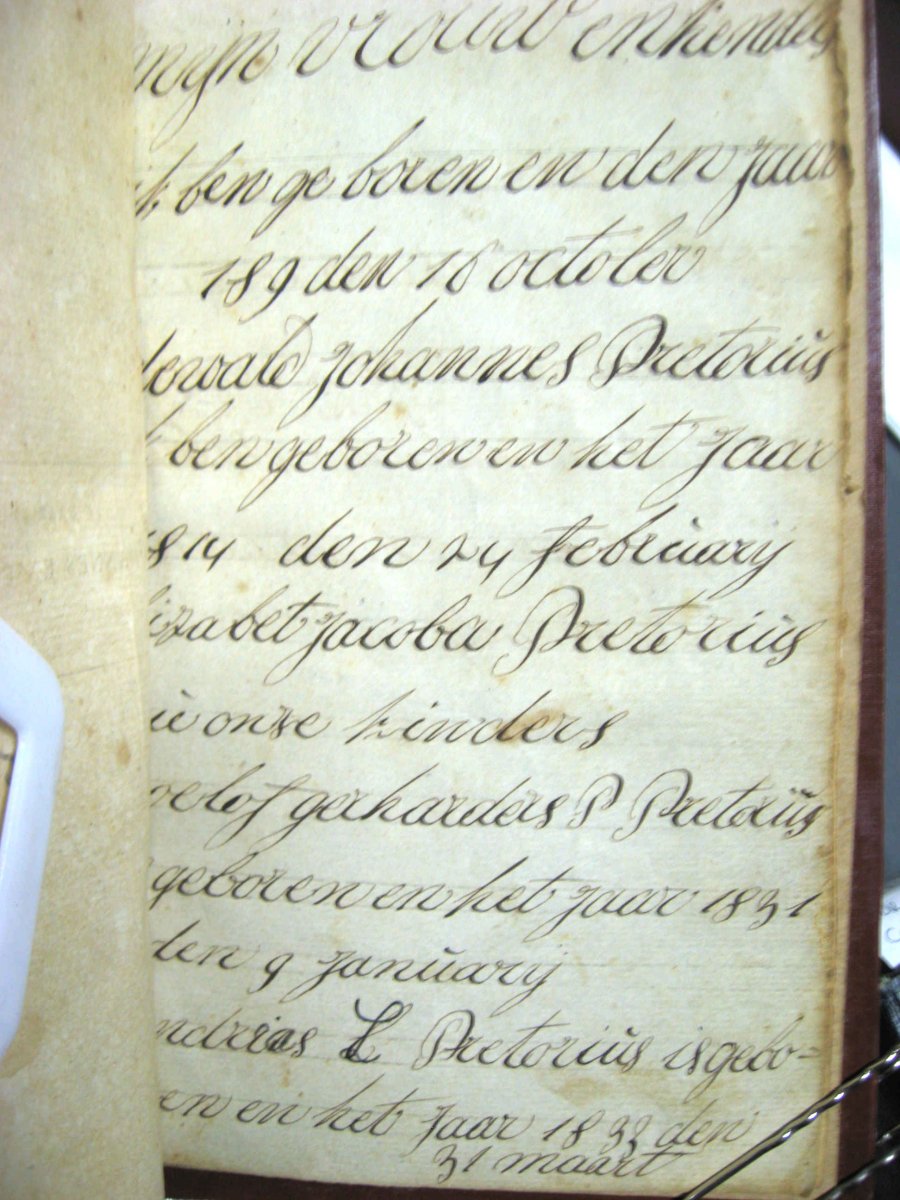 mijn vrouw en kenders
ik ben ge boren en den Jaar
189 den 16 october
dewald Johannes Pretorius
ben geboren en het Jaar
1814 den 24 februarij
lizabet Jacoba Pretorius
onze kinders
roelof gerharders P Pretorius
geboren en het Jaar 1831
den 9 Januarij
ndreias L Pretorius is gebo=
en en het Jaar 1832 den
31 maart